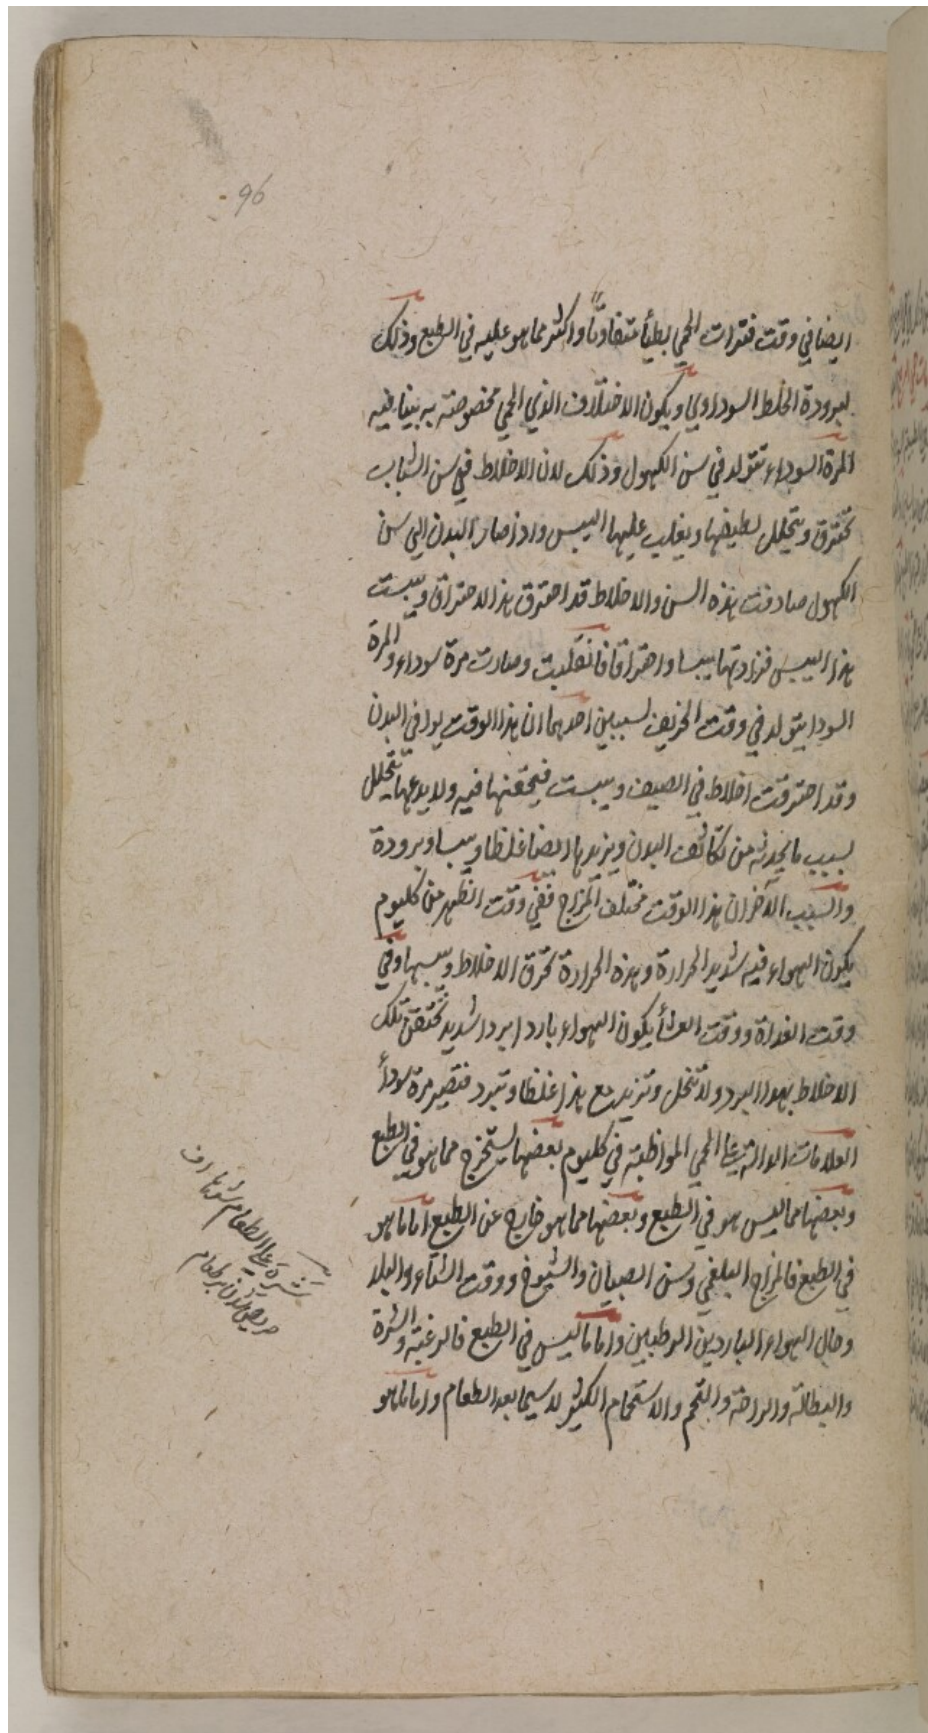 96
ايضا في وقت فترات الحمي بطيأ متفاوتا واكثر مما هو عليه في الطبع وذلك
لبرودة الخلط السوداوي ويكون الاختلاف الذي الحمي مخصوصة به بينا فيه
المرة السوداء تتولد في سن الكهول وذلك لان الاخلاط في سن الشباب
تحترق ويتحلل لطيفها ويغلب عليها اليبس واذ صار البدن الي سن
الكهول صادفت هذه السن والاخلاط قد احترق هذا الاحتراق ويبست
هذا اليبس فزادتها يبسا واحتراقا فانقلبت وصارت مرة سوداء والمرة
السودا يتولد في وقت الخريف لسببين احدهما ان هذا الوقت يوافي البدن
وقد احترقت اخلاط في الصيف ويبست فيحقنها فيه ولا يدعها تتحلل
بسبب ما يحدثه من تكاثف البدن ويزيدها ايضا غلظا ويبسا وبرودة
والسبب الآخر ان هذا الوقت مختلف المزاج ففي وقت الظهر من كل يوم
يكون الهواء فيه شديد الحرارة وهذه الحرارة تحرق الاخلاط ويبسها وفي
وقت الغداة ووقت العشأ يكون الهواء باردا بردا شديد تختقن تلك
الاخلاط بهذا البرد ولا تنحل وتزيد مع هذا غلظا وتبرد فتصير مرة سودأ
العلامات الدالة علي الحمي المواظبة في كل يوم بعضها يستخرج مما هو في الطبع
وبعضها مما ليس هو في الطبع وبعضها مما هو خارج عن الطبع اما ما هو
في الطبع فالمزاج البلغمي وسن الصبيان والشيوخ ووقت الشتاء والبلد
وحال الهواء الباردين الرطبين واما ما ليس في الطبع فالرغبة والشرة
والبطالة والراحة والتخم والاستحمام الكثير لا سيما بعد الطعام واما ما هو
شره علي الطعام